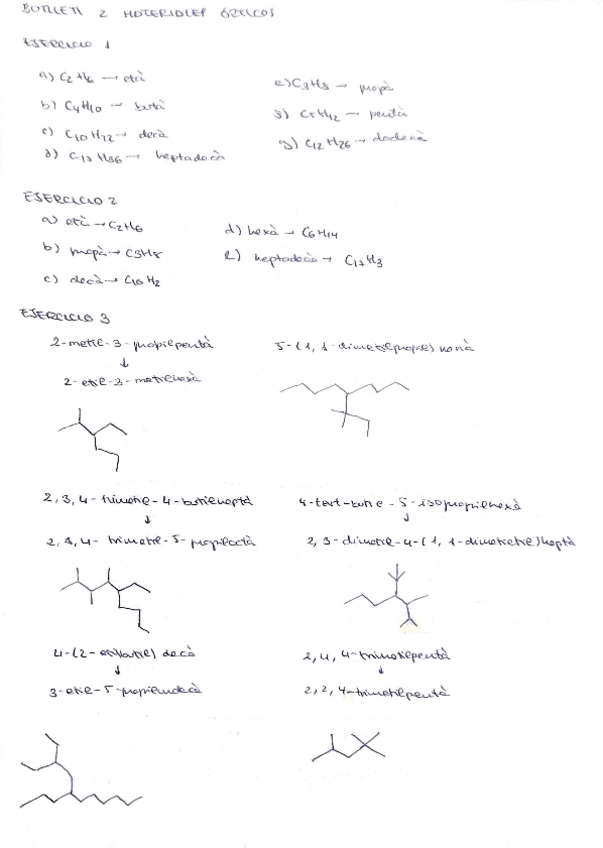 BUTLLETI 2 MATERIALES ÒPTICOS
EJERCICIO 1
a) C2H6 → età
b) C4H10 → butà
c) C10H22 → decà
d) C17H36 → heptadecà
e) C3H8 → propà
g) C5H12 → pentà
g) C12H26 → dodecà
EJERCICIO 2
a) età → C2H6
b) propà → C3H8
c) decà → C10H2
d) hexà → C6H14
e) heptadecà → C17H3
EJERCICIO 3
2-metil-3-propilpentà
↓
2-etil-3-metilhexà
5-(1,1-dimetilpropil) nonà
2,3,4-trimetil-4-butilheptà
↓
2,3,4-trimetil-5-propiloctà
4-tert-butil-5-isopropilhexà
↓
2,3-dimetil-4-(1,1-dimetiletil)heptà
4-(2-etilbutil) decà
↓
3-etil-5-propilundecà
2,4,4-trimetilpentà
↓
2,2,4-trimetilpentà